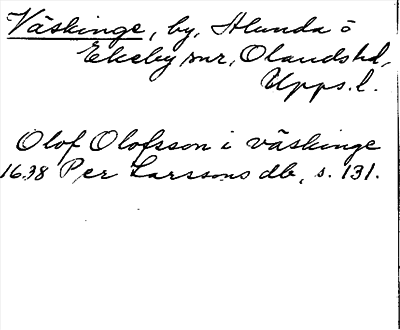 Väskinge, by, Hunda ö
Ekeby snr, Olandshd,
Upps. l.
Olof Olofsson i väskinge
1638 Per Larssons db, s. 131.